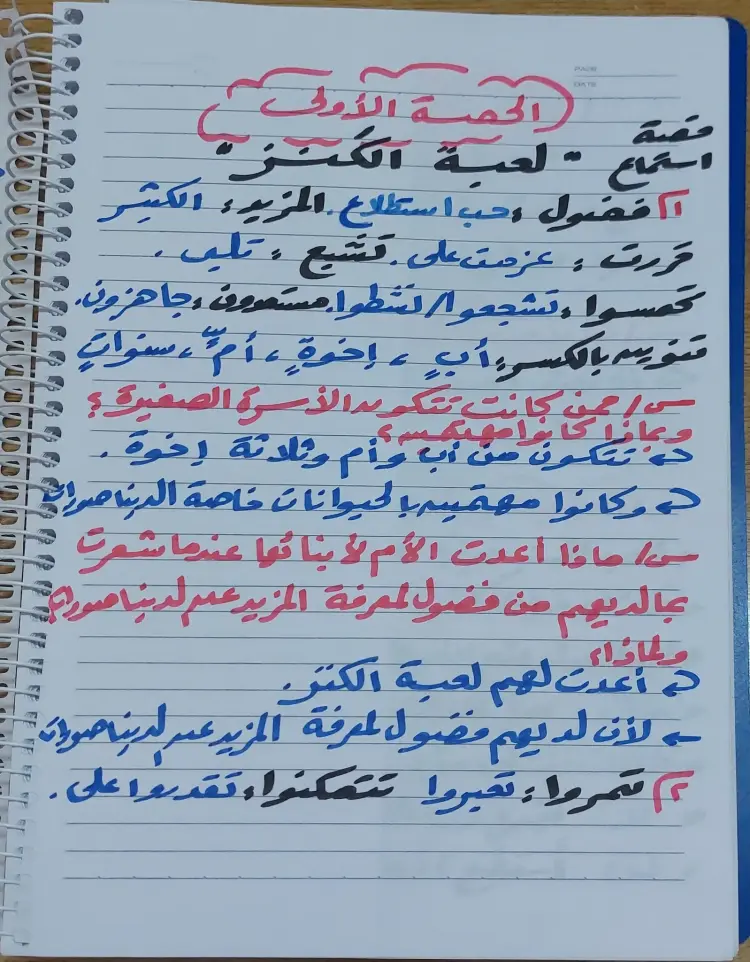 PAGE
DATE
الحصة الأولى
قصة
استماع " لعبة الكَنـز "
١) فضول : حب استطلاع. المزيد : الكثير
قررت : عزمت على. تشبع : تلبى .
تحمسوا : تشجعوا/ نشطوا. مستعدون : جاهزون.
تنوين بالكسر : أبٍ ، إخوةٍ ، أمٍّ ، سنواتٍ
س/ ممن كانت تتكون الأسرة الصغيرة ؟
وبماذا كانوا مهتمين ؟
تتكون من أب وأم وثلاثة إخوة .
وكانوا مهتمين بالحيوانات خاصة الديناصورات
س/ ماذا أعدت الأم لأبنائها عندما شعرت
بما لديهم من فضول لمعرفة المزيد عن الديناصورات
ولماذا؟
أعدت لهم لعبة الكنز.
← لأن لديهم فضول لمعرفة المزيد عن الديناصورات
٢) تمروا : تعبروا تتمكنوا : تقدروا على .